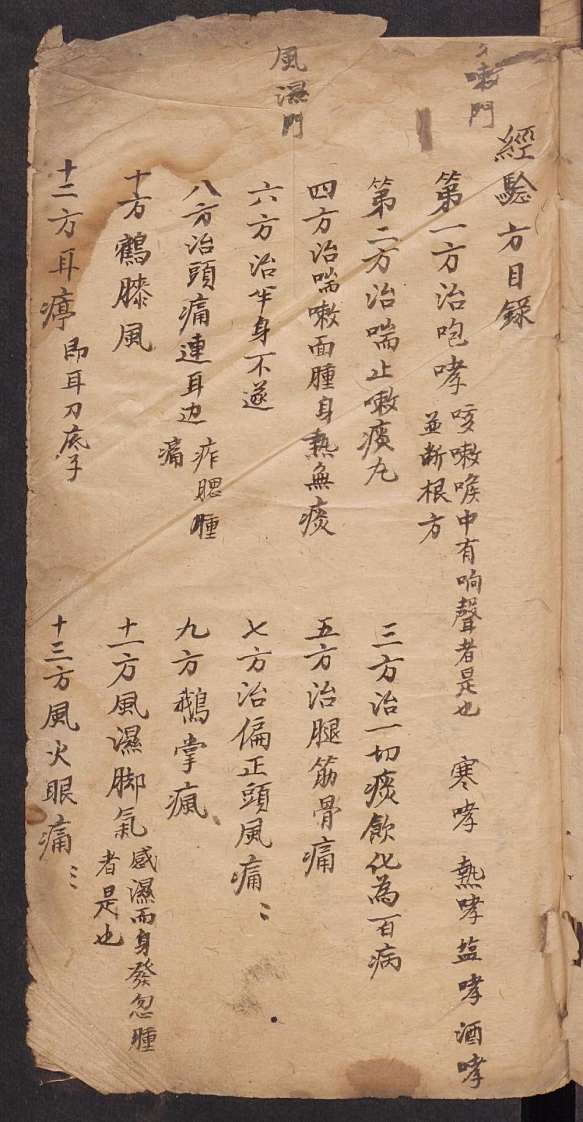 嗽門
經驗方目錄
第一方治咆哮 咳嗽喉中有响聲者是也 並斷根方 寒哮 熱哮 盐哮 酒哮
第二方治喘止嗽痰丸 三方治一切痰飲化為百病
風濕門
四方治喘嗽面腫身熱無痰 五方治腿筋骨痛
六方治半身不遂 七方治偏正頭風痛
八方治頭痛連耳边痛 痄腮腫 九方鵝掌瘋
十方鶴膝風 十一方風濕脚氣 感濕而身發忽腫者是也
十二方耳 即耳刀底子 十三方風火眼痛